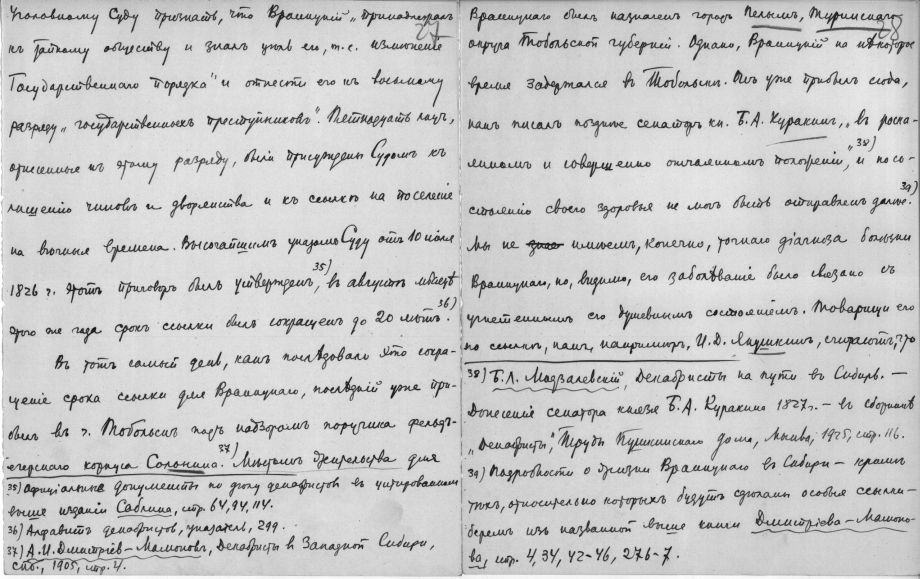 27
Уголовному Суду признать, что Враницкій „принадлежалъ
къ тайному обществу и зналъ цѣль его, т.е. измѣненіе
Государственнаго порядка" и отнести его къ восьмому
разряду „государственныхъ преступниковъ". Пятнадцать лицъ,
отнесенные къ этому разряду, были присуждены Судомъ къ
лишенію чиновъ и дворянства и къ ссылкѣ на поселеніе
на вѣчныя времена. Высочайшимъ указомъ Суду отъ 10 іюля
1826 г. этотъ приговоръ былъ утвержденъ,35) въ августѣ мѣсяцѣ
этого же года срокъ ссылки былъ сокращенъ до 20 лѣтъ.36)
Въ тотъ самый день, какъ послѣдовало это сокра-
щеніе срока ссылки для Враницкаго, послѣдній уже при-
былъ въ г. Тобольскъ подъ надзоромъ поручика фельдъ-
егерскаго корпуса Солонина.37) Мѣстомъ жительства для
35) Офиціальные документы по дѣлу декабристовъ въ цитированномъ
выше изданіи Саблина, стр. 64, 94, 114.
36) Алфавитъ декабристовъ, указатель, 299.
37) А.И. Дмитріевъ-Мамоновъ, Декабристы въ Западной Сибири,
Спб., 1905, стр. 4.
28
Враницкаго былъ назначенъ городъ Пелымъ, Туринскаго
округа Тобольской губерніи. Однако, Враницкій на нѣкоторое
время задержался въ Тобольскѣ. Онъ уже прибылъ сюда,
какъ писалъ позднѣе сенаторъ кн. Б.А. Куракинъ, „въ роспа-
ленномъ и совершенно отчаянномъ положеніи,"38) и по со-
стоянію своего здоровья не могъ быть отправленъ далѣе.39)
Мы не имѣемъ, конечно, точнаго діагноза болѣзни
Враницкаго, но, видимо, его заболѣваніе было связано съ
угнетеннымъ его душевнымъ состояніемъ. Товарищи его
по ссылкѣ, какъ, напримѣръ, И.Д. Якушкинъ, считаютъ, что
38) Б.Л. Модзалевскій, Декабристы на пути въ Сибирь. —
Донесенія сенатора князя Б.А. Куракина 1827 г. — въ сборникѣ
„Декабристы", Труды Пушкинскаго дома, Москва, 1925, стр. 116.
39) Подробности о жизни Враницкаго въ Сибири — кромѣ
тѣхъ, относительно которыхъ будутъ сдѣланы особыя ссылки —
беремъ изъ названной выше книги Дмитріева-Мамоно-
ва, стр. 4, 34, 42-46, 276-7.